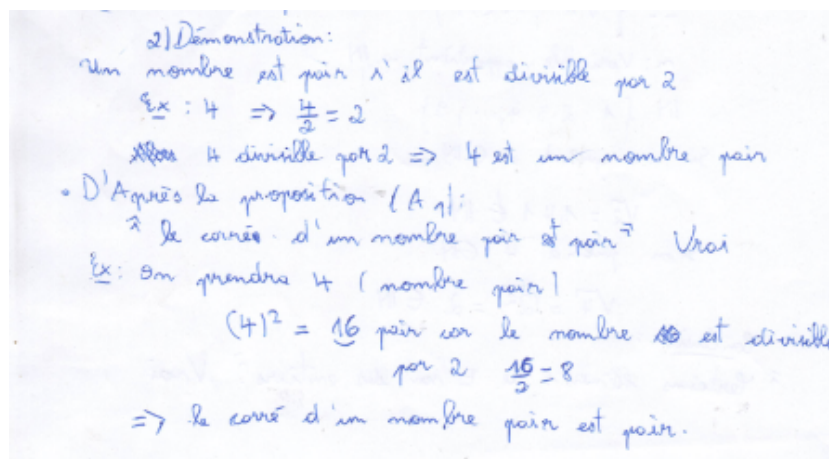 2) Démonstration:
Un nombre est pair s'il est divisible par 2
Ex : 4 => 4/2 = 2
4 divisible par 2 => 4 est un nombre pair
• D'Après la proposition (A1):
" le carrée d'un nombre pair est pair" Vrai
Ex: on prendra 4 (nombre pair)
(4)² = 16 pair car le nombre est divisible
par 2 16/2 = 8
=> le carré d'un nombre pair est pair.